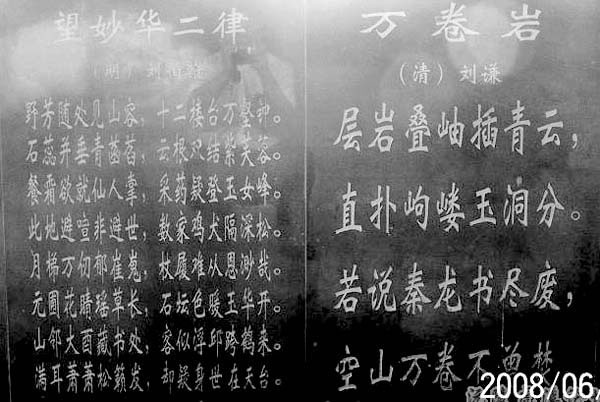 望妙华二律
(明) 刘
野芳随处见山容，十二楼台万壑钟。
石蕊并垂青菡萏，云根双结紫芙蓉。
餐霜欲就仙人掌，采药疑登玉女峰。
此地避喧非避世，数家鸡犬隔深松。
月梯万仞郁崔嵬，杖履难从思渺哉。
元圃花晴瑶草长，石坛色暖玉华开。
山邻大酉藏书处，客似浮邱跨鹤来。
满耳萧萧松籁发，却疑身世在天台。
万卷岩
(清) 刘谦
层岩叠岫插青云，
直扑岣嵝玉洞分。
若说秦龙书尽废，
空山万卷不
2008/06/